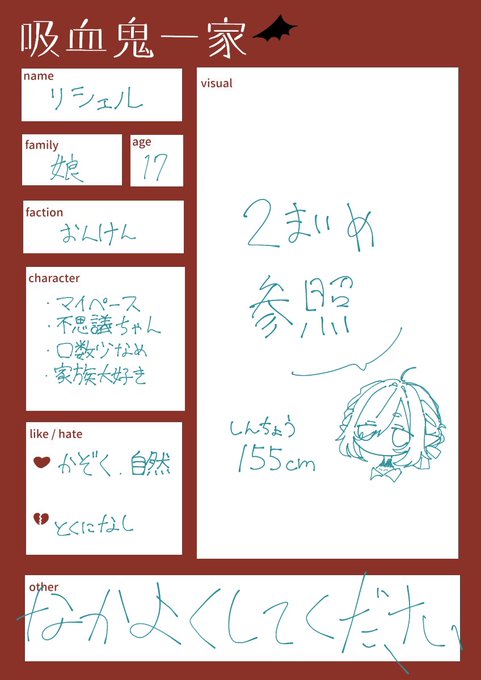 吸血鬼一家
name
リシェル
family
娘
age
17
faction
おんけん
character
・マイペース
・不思議ちゃん
・口数少なめ
・家族大好き
like / hate
かぞく、自然
とくになし
visual
2まいめ
参照
しんちょう
155cm
other
なかよくしてください